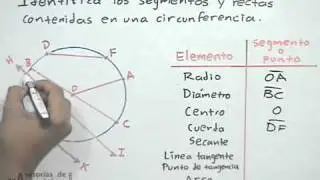 Identifica los segmentos y rectas
contenidas en una circunferencia.
Elemento
Segmento
o
Punto
Radio OA
Diámetro BC
Centro O
Cuerda DF
Secante
Línea tangente
Punto de tangencia
Arco
H
B
D
F
A
O
C
I
K